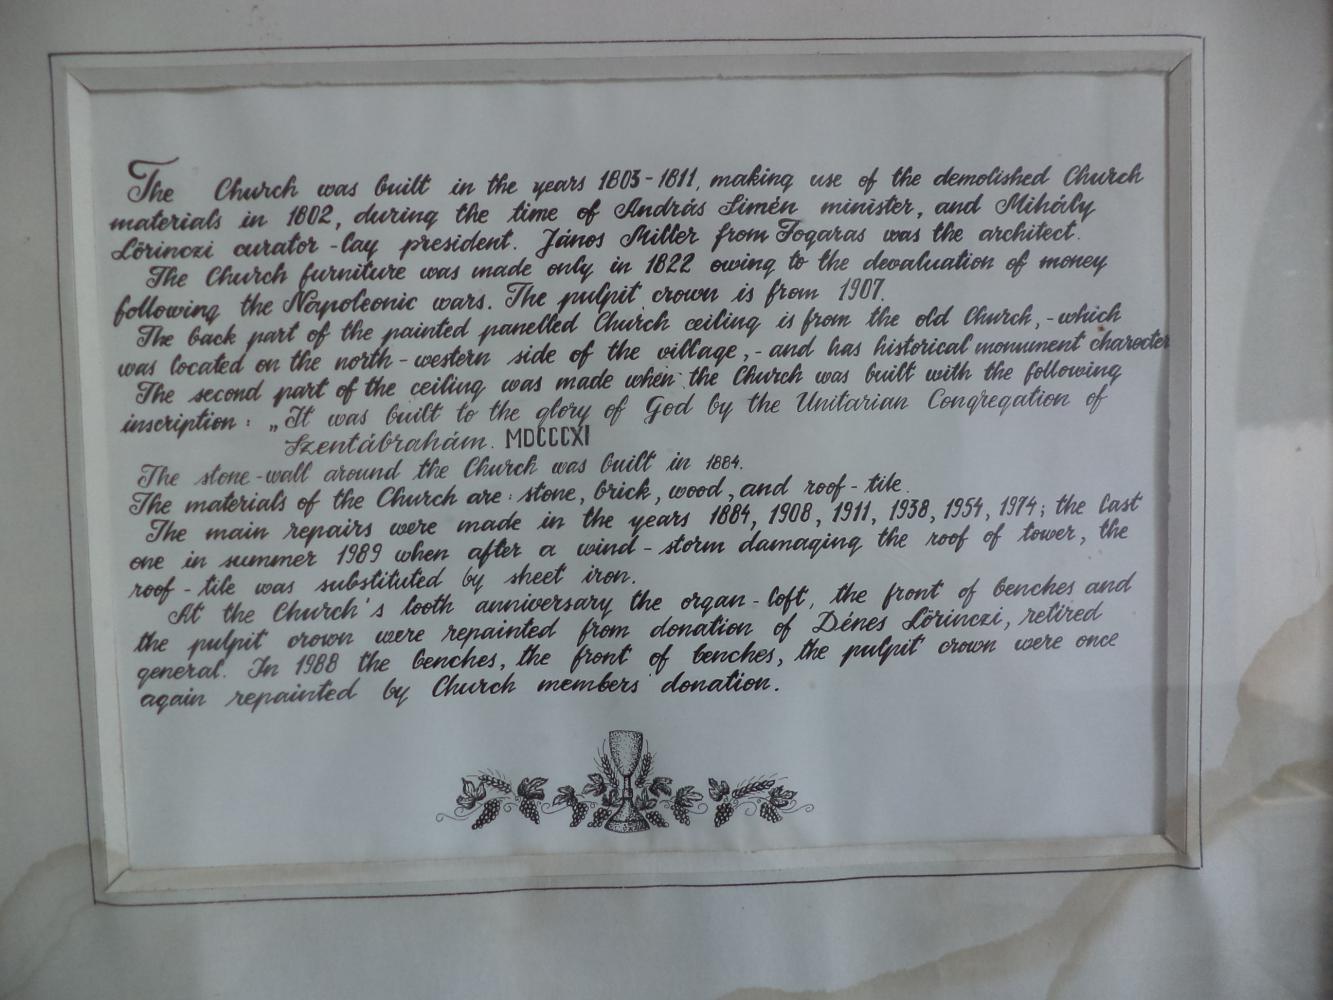 The Church was built in the years 1803-1811, making use of the demolished Church
materials in 1802, during the time of András Simén minister, and Mihály
Lörinczi curator-lay president. János Miller from Fogaras was the architect.
The Church furniture was made only in 1822 owing to the devaluation of money
following the Napoleonic wars. The pulpit crown is from 1907.
The back part of the painted panelled Church ceiling is from the old Church, - which
was located on the north-western side of the village, - and has historical monument character
The second part of the ceiling was made when the Church was built with the following
inscription: „It was built to the glory of God by the Unitarian Congregation of
Szentábrahám. MDCCCXI
The stone-wall around the Church was built in 1884.
The materials of the Church are: stone, brick, wood, and roof-tile.
The main repairs were made in the years 1884, 1908, 1911, 1938, 1954, 1974; the last
one in summer 1989 when after a wind-storm damaging the roof of tower, the
roof-tile was substituted by sheet iron.
At the Church's 100th anniversary the organ-loft, the front of benches and
the pulpit crown were repainted from donation of Dénes Lörinczi, retired
general. In 1988 the benches, the front of benches, the pulpit crown were once
again repainted by Church members' donation.